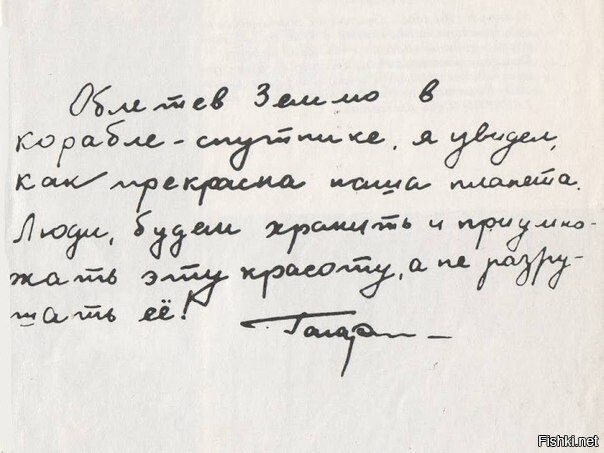 Облетев Землю в
корабле-спутнике, я увидел,
как прекрасна наша планета.
Люди, будем хранить и приумно-
жать эту красоту, а не разру-
шать её!
Гагарин
Fishki.net